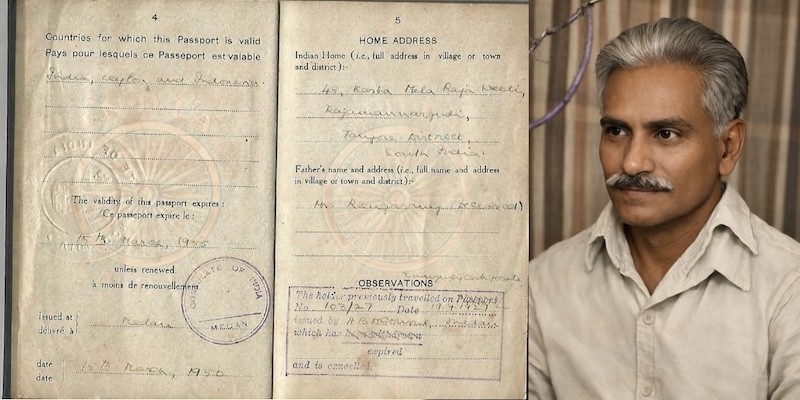 4
Countries for which this Passport is valid
Pays pour lesquels ce Passeport est valable
India, Ceylon and Indonesia.
The validity of this passport expires :
Ce passeport expire le :
15th March, 1955
unless renewed.
à moins de renouvellement.
CONSULATE OF INDIA
MEDAN
Issued at
délivré à
Medan
date
date
15th March, 1950
5
HOME ADDRESS
Indian Home (i.e., full address in village or town
and district):-
48, Kasba Mela Raja Veedi,
Rajamannargudi,
Tanjore District,
South India.
Father's name and address (i.e., full name and address
in village or town and district):-
(deceased)
Emergency Certificate
OBSERVATIONS
The holder previously travelled on Passport
No. 103/27 Date
issued by
which has been withdrawn
expired
and is cancelled.